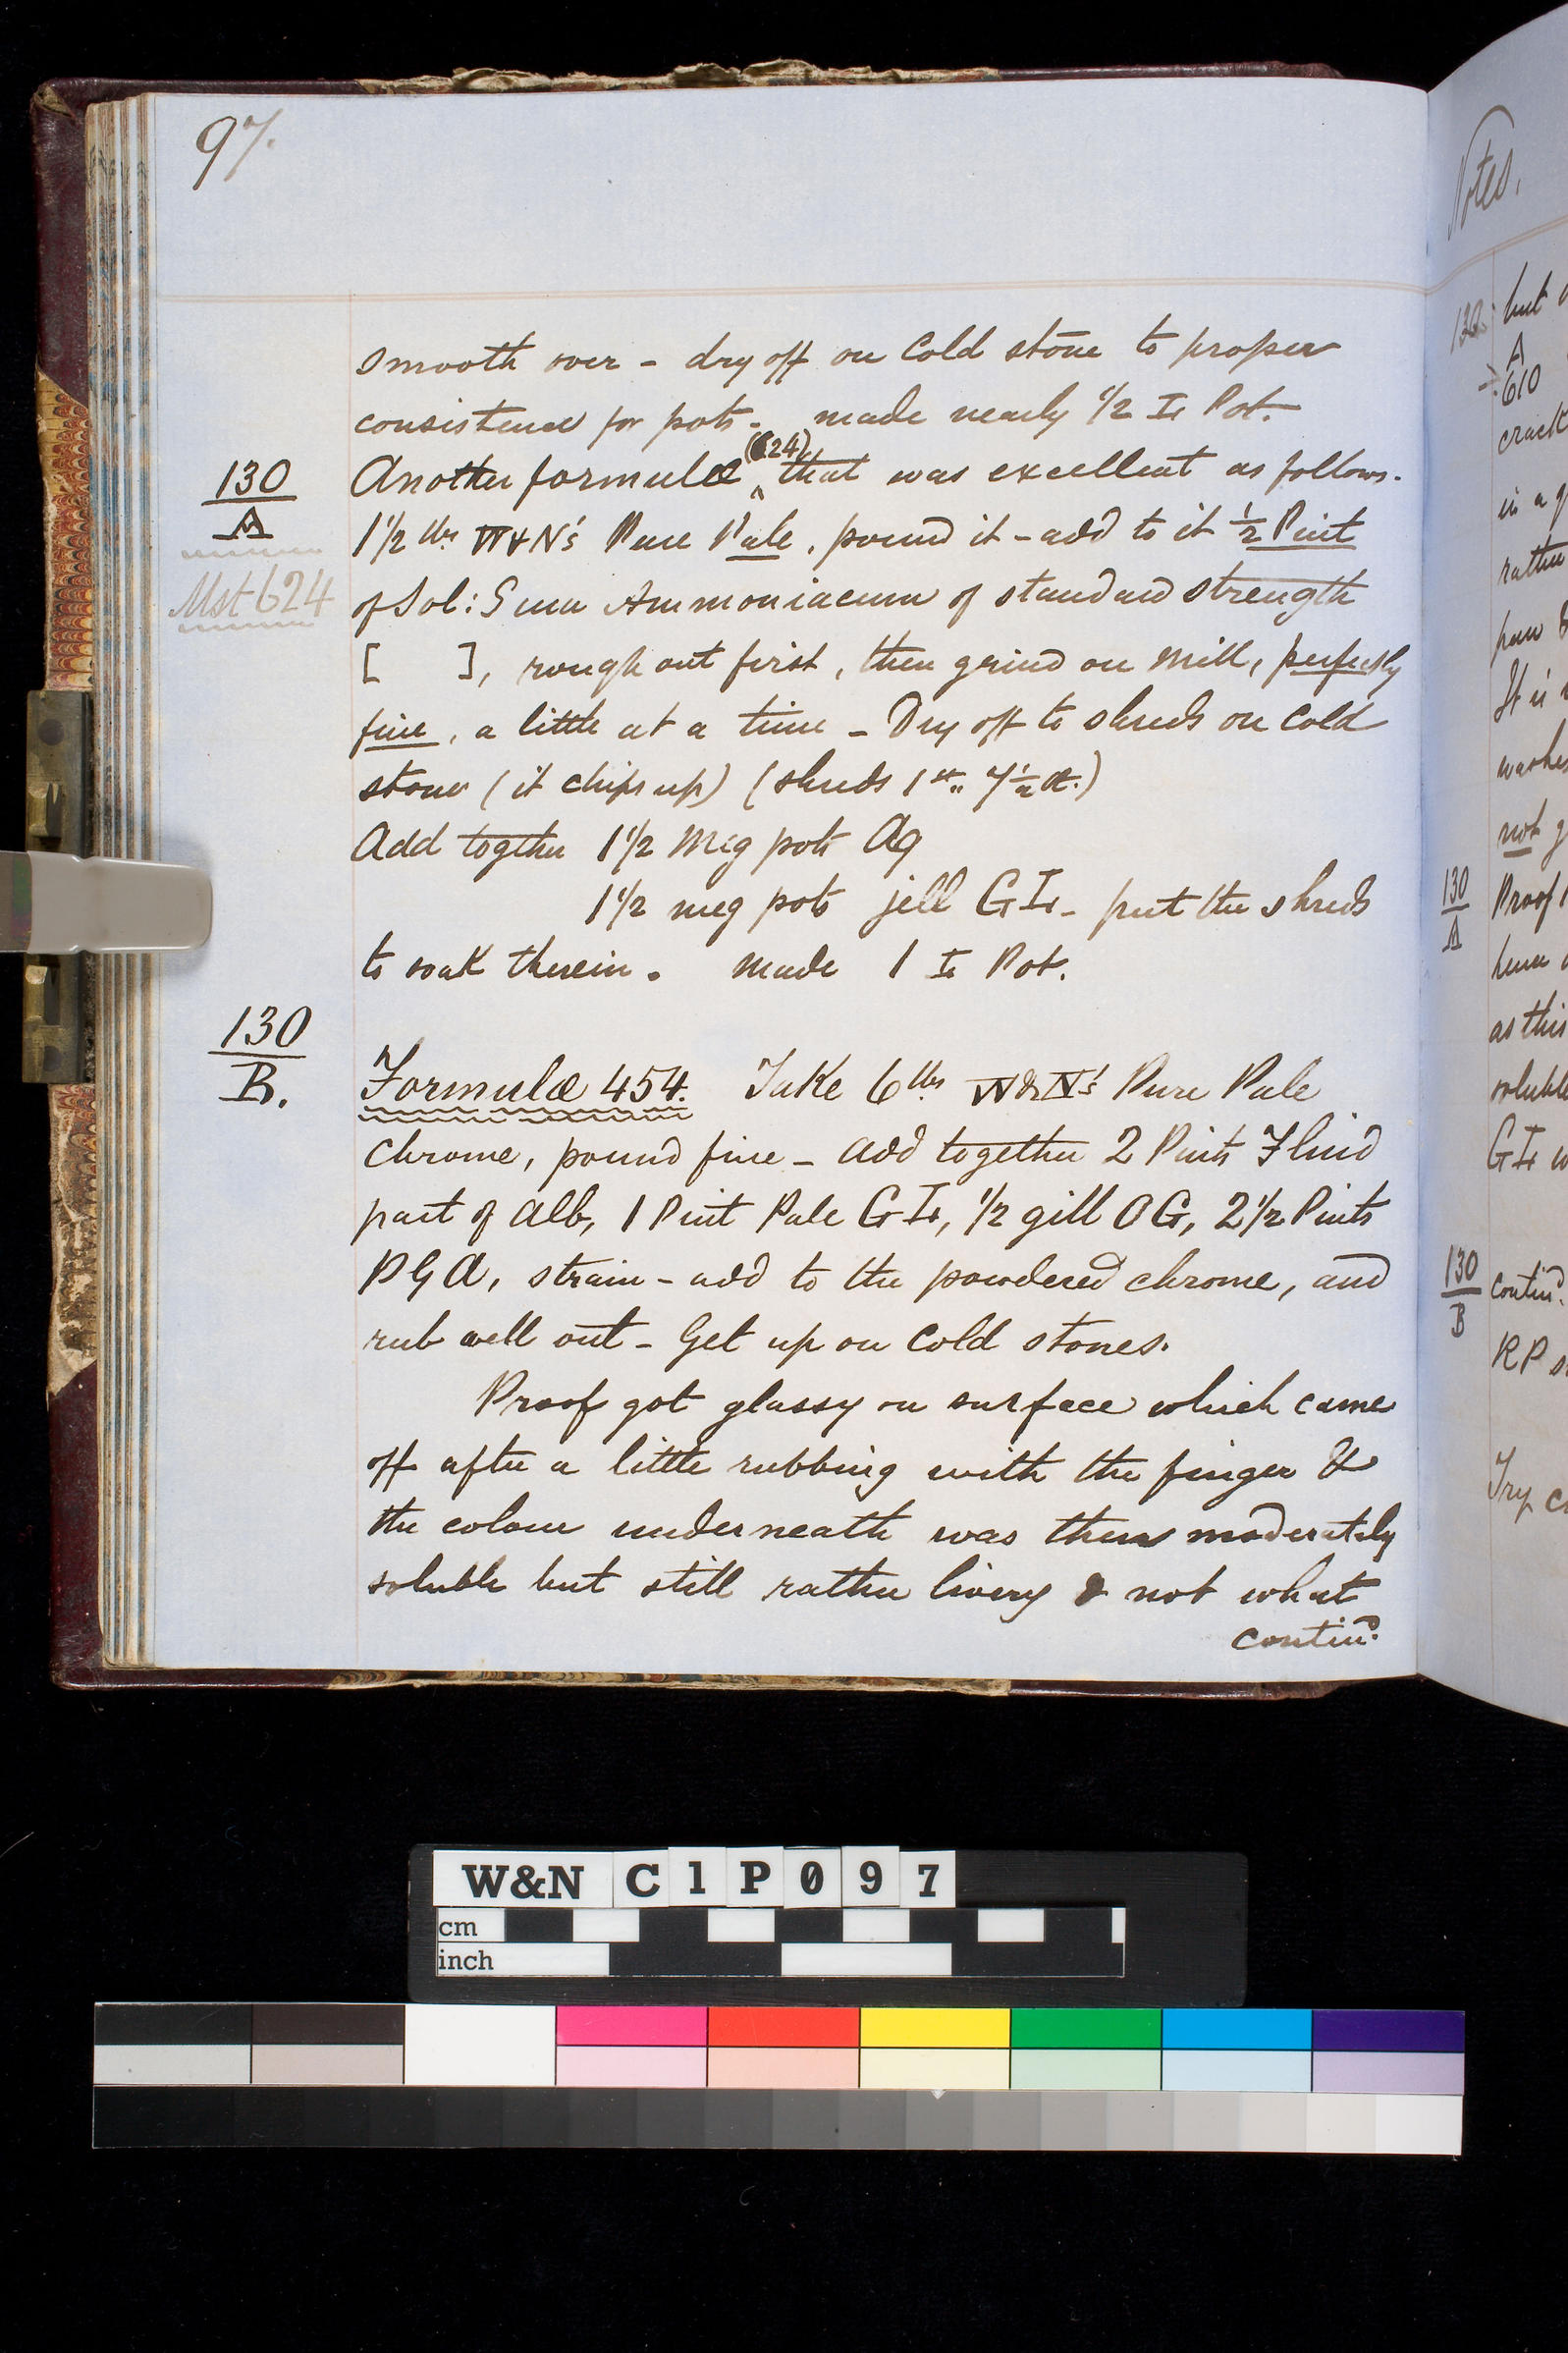 97.
smooth over - dry off on Cold stone to proper
consistence for pots. made nearly 1/2 Ir Pot.
130
A
Mst 624
Another formulæ (624) that was excellent as follows.
1 1/2 lbs W&N's Pure Pale, pound it - add to it 1/2 Pint
of Sol: Gum Ammoniacum of standard strength
[ ], rough out first, then grind on Mill, perfectly
fine, a little at a time - Dry off to shreds on Cold
stone (it chips up) (shreds 1
Add together 1 1/2 Meg pots Aq
1 1/2 meg pots jell G - put the shreds
to soak therein. made 1 Pot.
130
B.
Formulæ 454. Take 6 lbs W&N's Pure Pale
Chrome, pound fine - add together 2 Pints Fluid
part of Alb, 1 Pint Pale G, 1/2 gill OG, 2 1/2 Pints
PGA, strain - add to the powdered chrome, and
rub well out - Get up on Cold stones.
Proof got glassy on surface which came
off after a little rubbing with the finger &
the colour underneath was then moderately
soluble but still rather livery & not what
contind.
Notes.
130
but
A
610
crack
in a
rather
It is
washes
not g
130
A
Proof
hence
as this
soluble
G
130
B
contind.
RP
Try
W&N C1P097
cm
inch